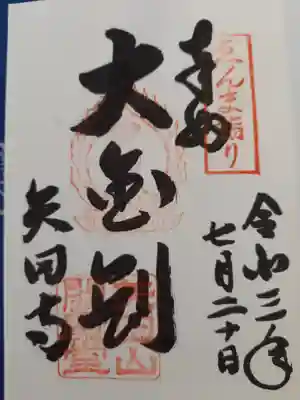 ゑんま詣り
奉拝
大金剛
矢田寺
令和三年
七月二十日